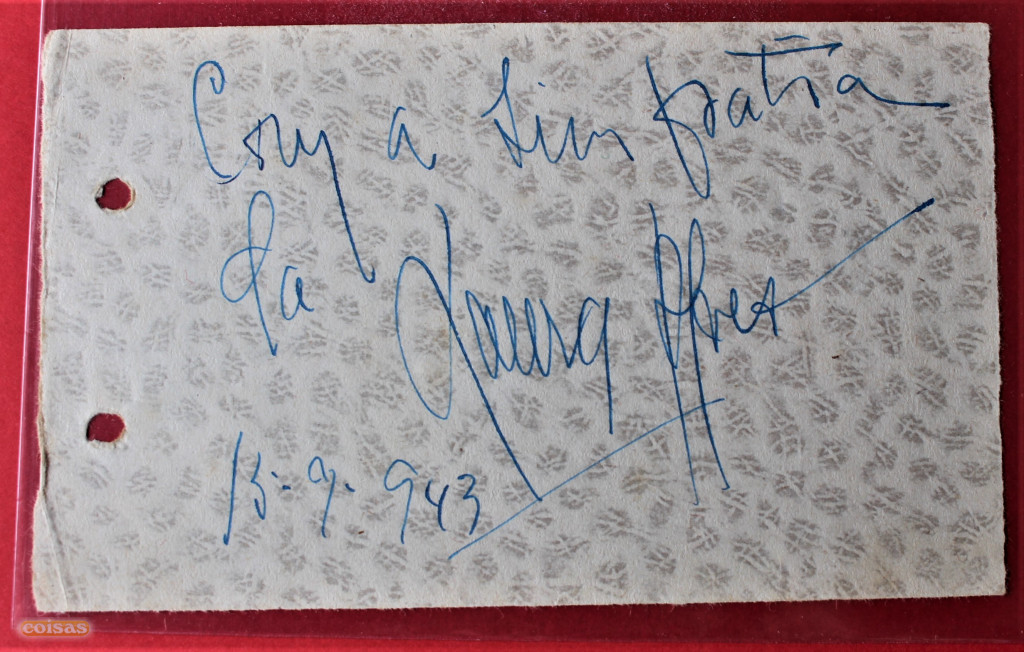 Com a simpatia
da Laura Alves
15-9-943
coisas